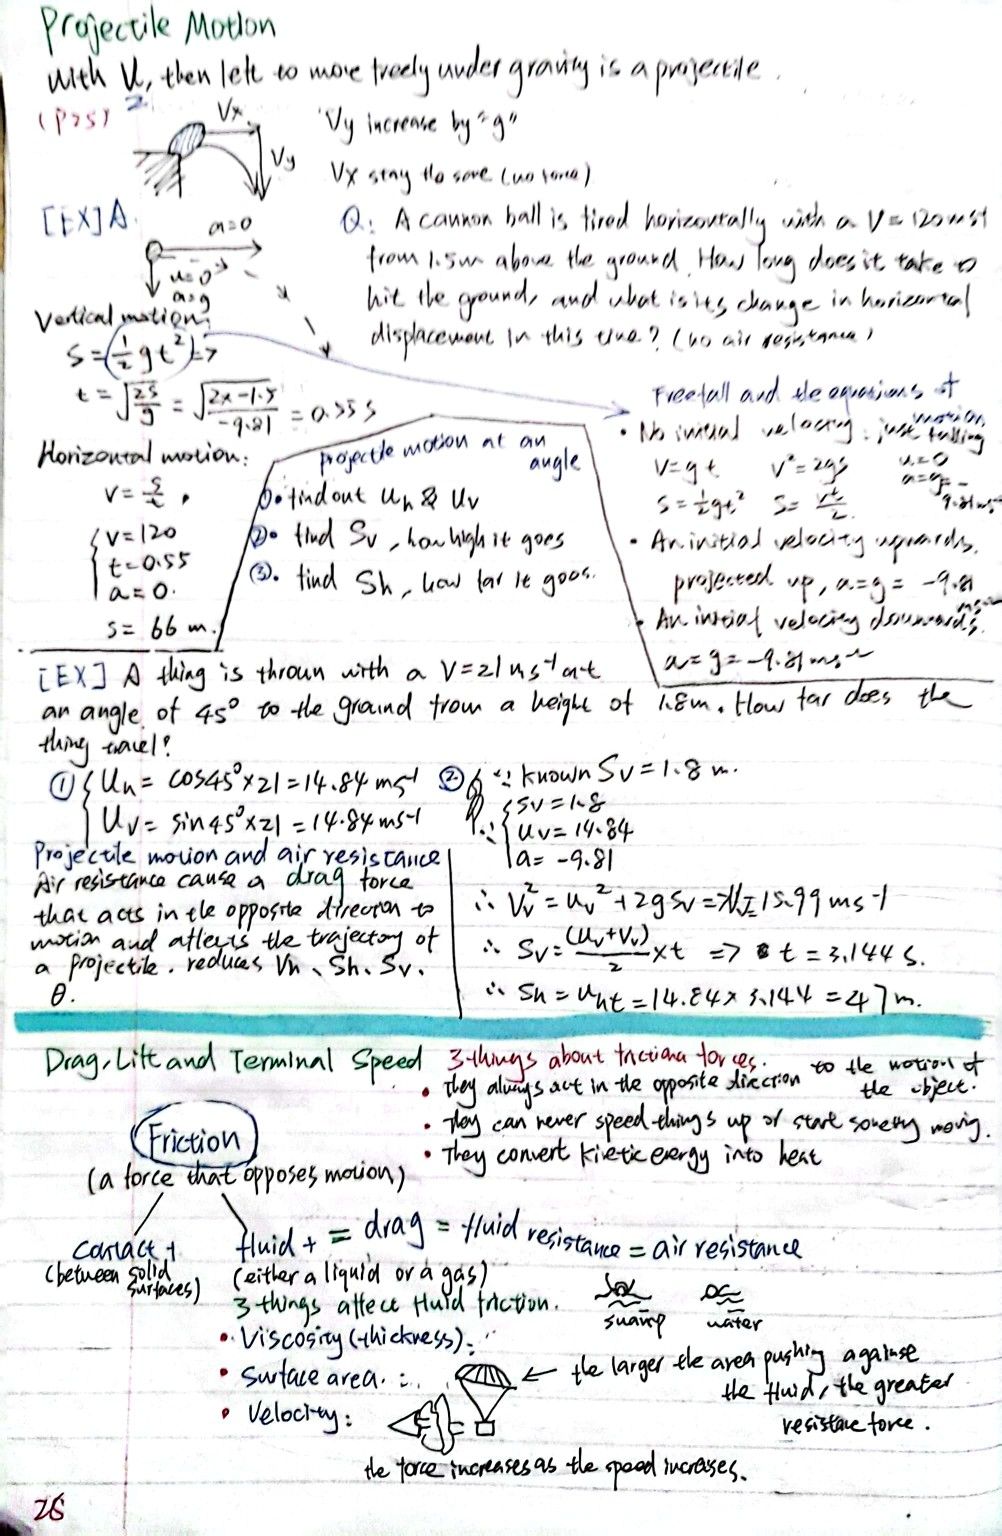 Projectile Motion
With U, then left to move freely under gravity is a projectile.
(P25)
Vx
Vy
"Vy increase by "g"
Vx stay the same (no force)
[EX] A.
a=0
u=0
a=g
Q: A cannon ball is fired horizontally with a V=120ms-1
from 1.5m above the ground. How long does it take to
hit the ground, and what is its change in horizontal
displacement in this time? (no air resistance)
Vertical motion:
S=(½gt²)=>
t = √2s/g = √2x-1.5/-9.81 = 0.55 s
Horizontal motion:
v = s/t
v=120
t=0.55
a=0.
s= 66 m.
projectile motion at an
angle
①. find out Uh & Uv
②. find Sv, how high it goes
③. find Sh, how far it goes.
Freefall and the equations of
motion
• No initial velocity: just falling
v=gt v²=2gs u=0
s=½gt² s= vt/2 a=g=-9.81ms-2
• An initial velocity upwards.
projected up, a=g= -9.81
ms-2
• An initial velocity downwards.
a=g=-9.81ms-2
[EX] A thing is thrown with a V=21ms-1 at
an angle of 45° to the ground from a height of 1.8m. How far does the
thing travel?
① Uh = cos45°×21=14.84 ms-1
Uv= sin45°×21 =14.84ms-1
② ∵ known Sv=1.8 m.
∵ Sv=1.8
Uv=14.84
a= -9.81
∴ Vv²= Uv²+2gSv= 15.99 ms-1
∴ Sv= (Uv+Vv)/2 ×t => t = 3.144 s.
∴ Sh = Uht =14.84× 3.144 =47m.
Projectile motion and air resistance
Air resistance cause a drag force
that acts in the opposite direction to
motion and affects the trajectory of
a projectile. reduces Vh、Sh、Sv、
θ.
Drag, Lift and Terminal Speed
3 things about frictional forces.
• They always act in the opposite direction to the motion of
the object.
• They can never speed things up or start something moving.
• They convert kinetic energy into heat
Friction
(a force that opposes motion)
Contact f
(between solid
surfaces)
fluid f = drag = fluid resistance = air resistance
(either a liquid or a gas)
3 things affect fluid friction.
swamp water
• Viscosity (thickness):
• Surface area.:
the larger the area pushing against
the fluid, the greater
resistance force.
• Velocity:
the force increases as the speed increases.
26